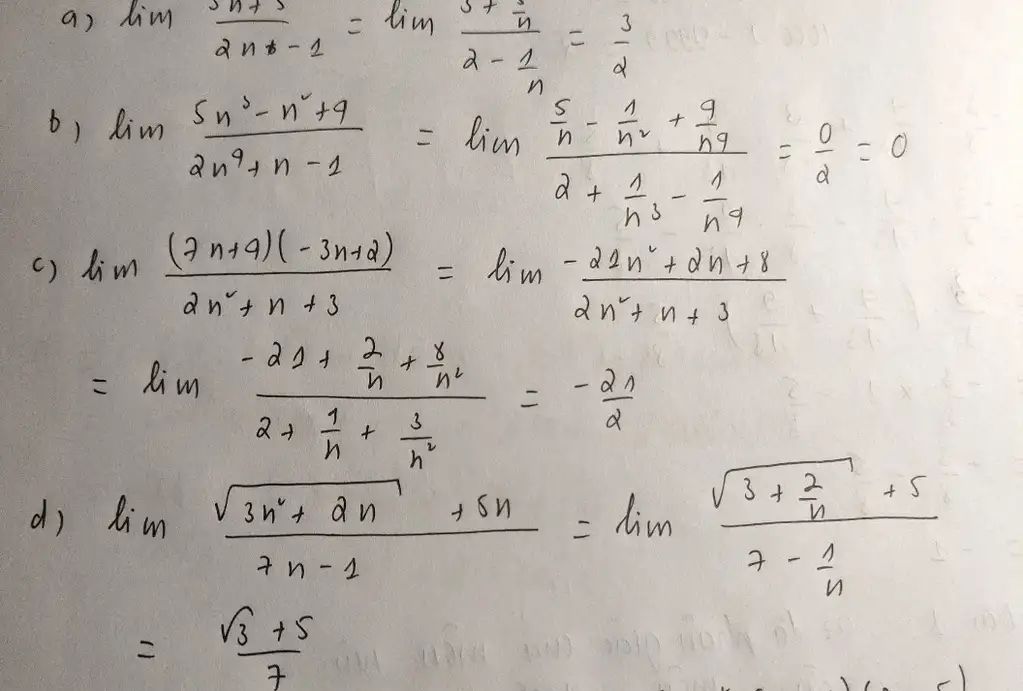 a) lim (3n+3)/(2n-1) = lim (3 + 3/n)/(2 - 1/n) = 3/2
b) lim (5n³ - n² + 9)/(2n⁴ + n - 1) = lim (5/n - 1/n² + 9/n⁴)/(2 + 1/n³ - 1/n⁴) = 0/2 = 0
c) lim ((7n+4)(-3n+2))/(2n² + n + 3) = lim (-21n² + 2n + 8)/(2n² + n + 3)
= lim (-21 + 2/n + 8/n²)/(2 + 1/n + 3/n²) = -21/2
d) lim (√(3n² + 2n) + 5n)/(7n - 1) = lim (√(3 + 2/n) + 5)/(7 - 1/n)
= (√3 + 5)/7